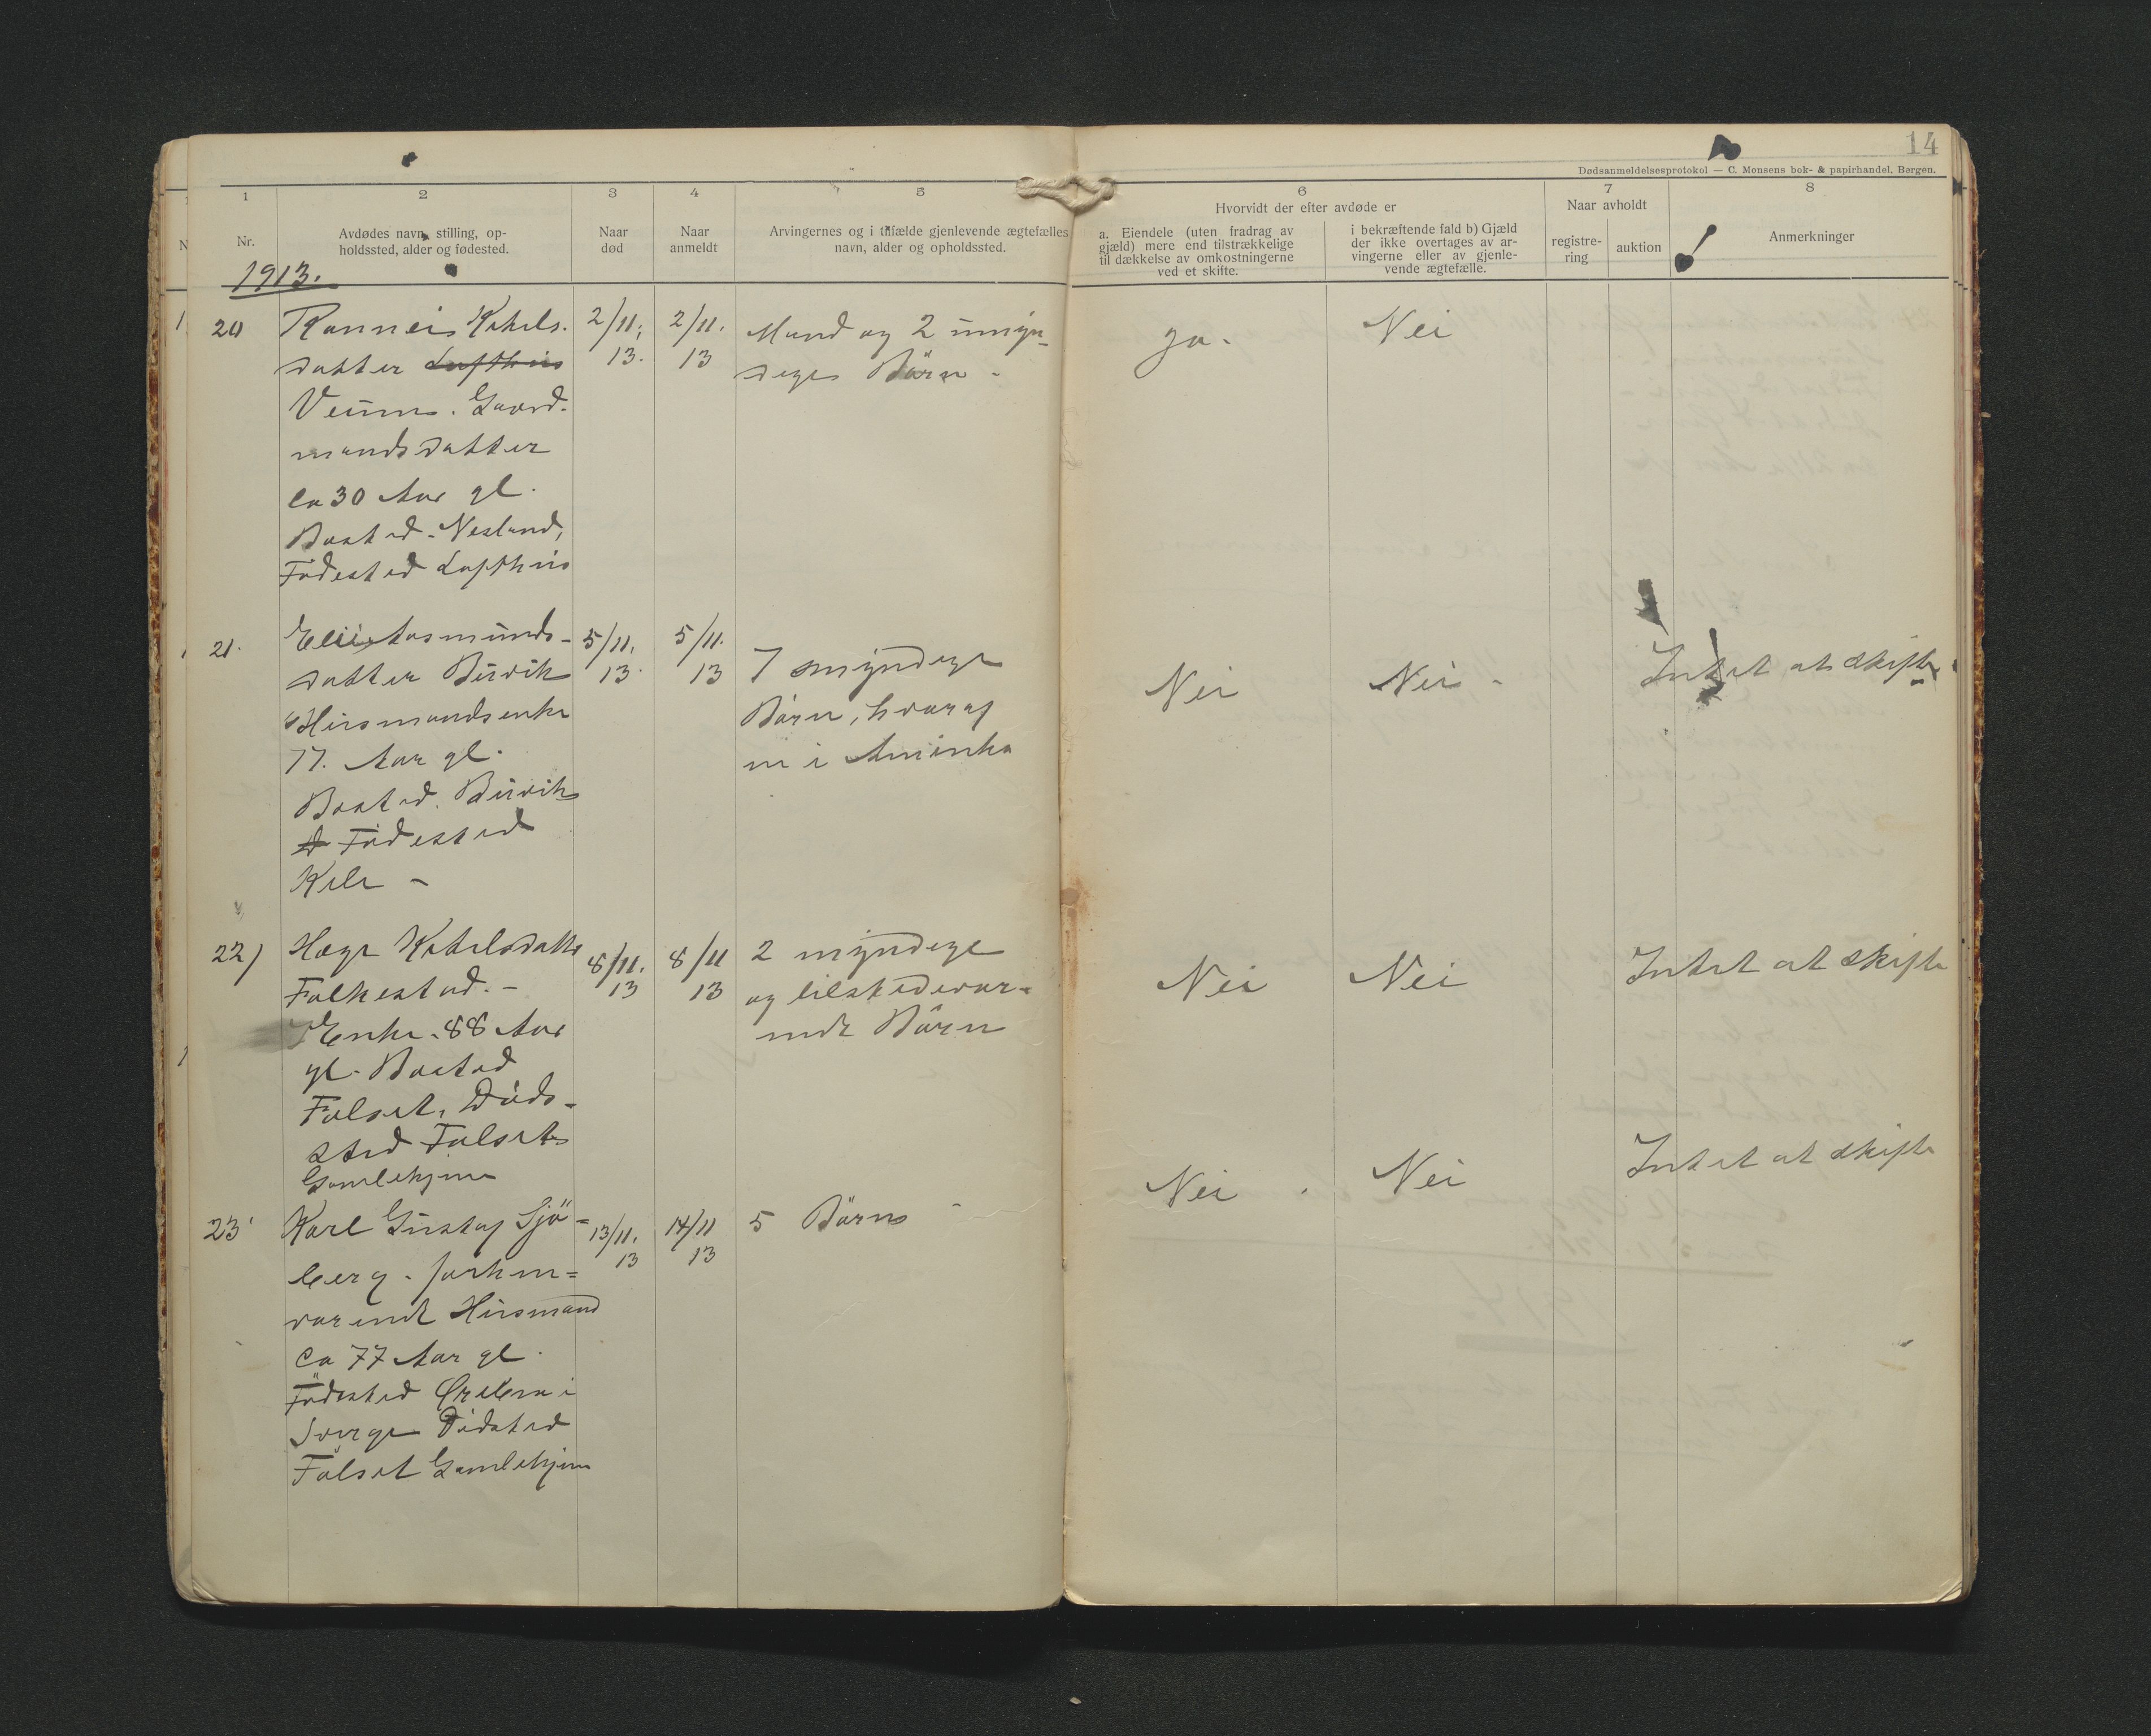 14
Dødsanmeldelsesprotokol — C. Monsens bok- & papirhandel, Bergen.
1 2 3 4 5 6 7 8
Nr.
Avdødes navn, stilling, op-
holdssted, alder og fødested.
Naar
død
Naar
anmeldt
Arvingernes og i tilfælde gjenlevende ægtefælles
navn, alder og opholdssted.
Hvorvidt der efter avdøde er
a. Eiendele (uten fradrag av
gjæld) mere end tilstrækkelige
til dækkelse av omkostningerne
ved et skifte.
i bekræftende fald b) Gjæld
der ikke overtages av ar-
vingerne eller av gjenle-
vende ægtefælle.
Naar avholdt
registre-
ring
auktion
Anmerkninger
1913.
20
Rannei Ketils.
datter Lofthus
Veum. Gaard-
mandsdatter
ca 30 Aar gl.
Bosted. Nesland,
Födested Lofthus
2/11.
13.
2/11.
13
Mand og 2 umyn-
dige Börn -
Ja.
Nei
21.
Aasmunds-
datter Buvik
Husmandsenke
77. Aar gl.
Bosted. Buvik
Födested
Kile -
5/11.
13.
5/11.
13
7 myndige
Börn, hvoraf
en i Amerika
Nei
Nei -
Intet at skifte
22)
Hæge Ketilsdatter
Folkestad. -
Enke. 88 Aar
gl. Bosted
Falset. Döds-
sted Falset
Gamlehjem
8/11.
13
8/11
13
2 myndige
og tilstedevær-
ende Börn
Nei
Nei
Intet at skifte
23
Karl Gustaf Sjö-
berg. forhen-
værende Husmand
ca 77 Aar gl.
Födested Ørebro i
Sverge Dödsted
Falset Gamlehjem
13/11.
13
14/11
13
5 Börn
Nei .
Nei
Intet at skifte